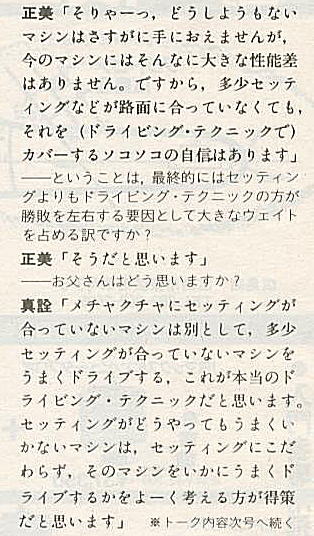 正美「そりゃーっ，どうしようもない
マシンはさすがに手におえませんが，
今のマシンにはそんなに大きな性能差
はありません。ですから，多少セッテ
ィングなどが路面に合っていなくても，
それを（ドライビング・テクニックで）
カバーするソコソコの自信はあります」
――ということは，最終的にはセッティン
グよりもドライビング・テクニックの方が
勝敗を左右する要因として大きなウェイト
を占める訳ですか？
正美「そうだと思います」
――お父さんはどう思いますか？
真詮「メチャクチャにセッティングが
合っていないマシンは別として，多少
セッティングが合っていないマシンを
うまくドライブする，これが本当のド
ライビング・テクニックだと思います。
セッティングがどうやってもうまくい
かないマシンは，セッティングにこだ
わらず，そのマシンをいかにうまくド
ライブするかをよーく考える方が得策
だと思います」　※トーク内容次号へ続く